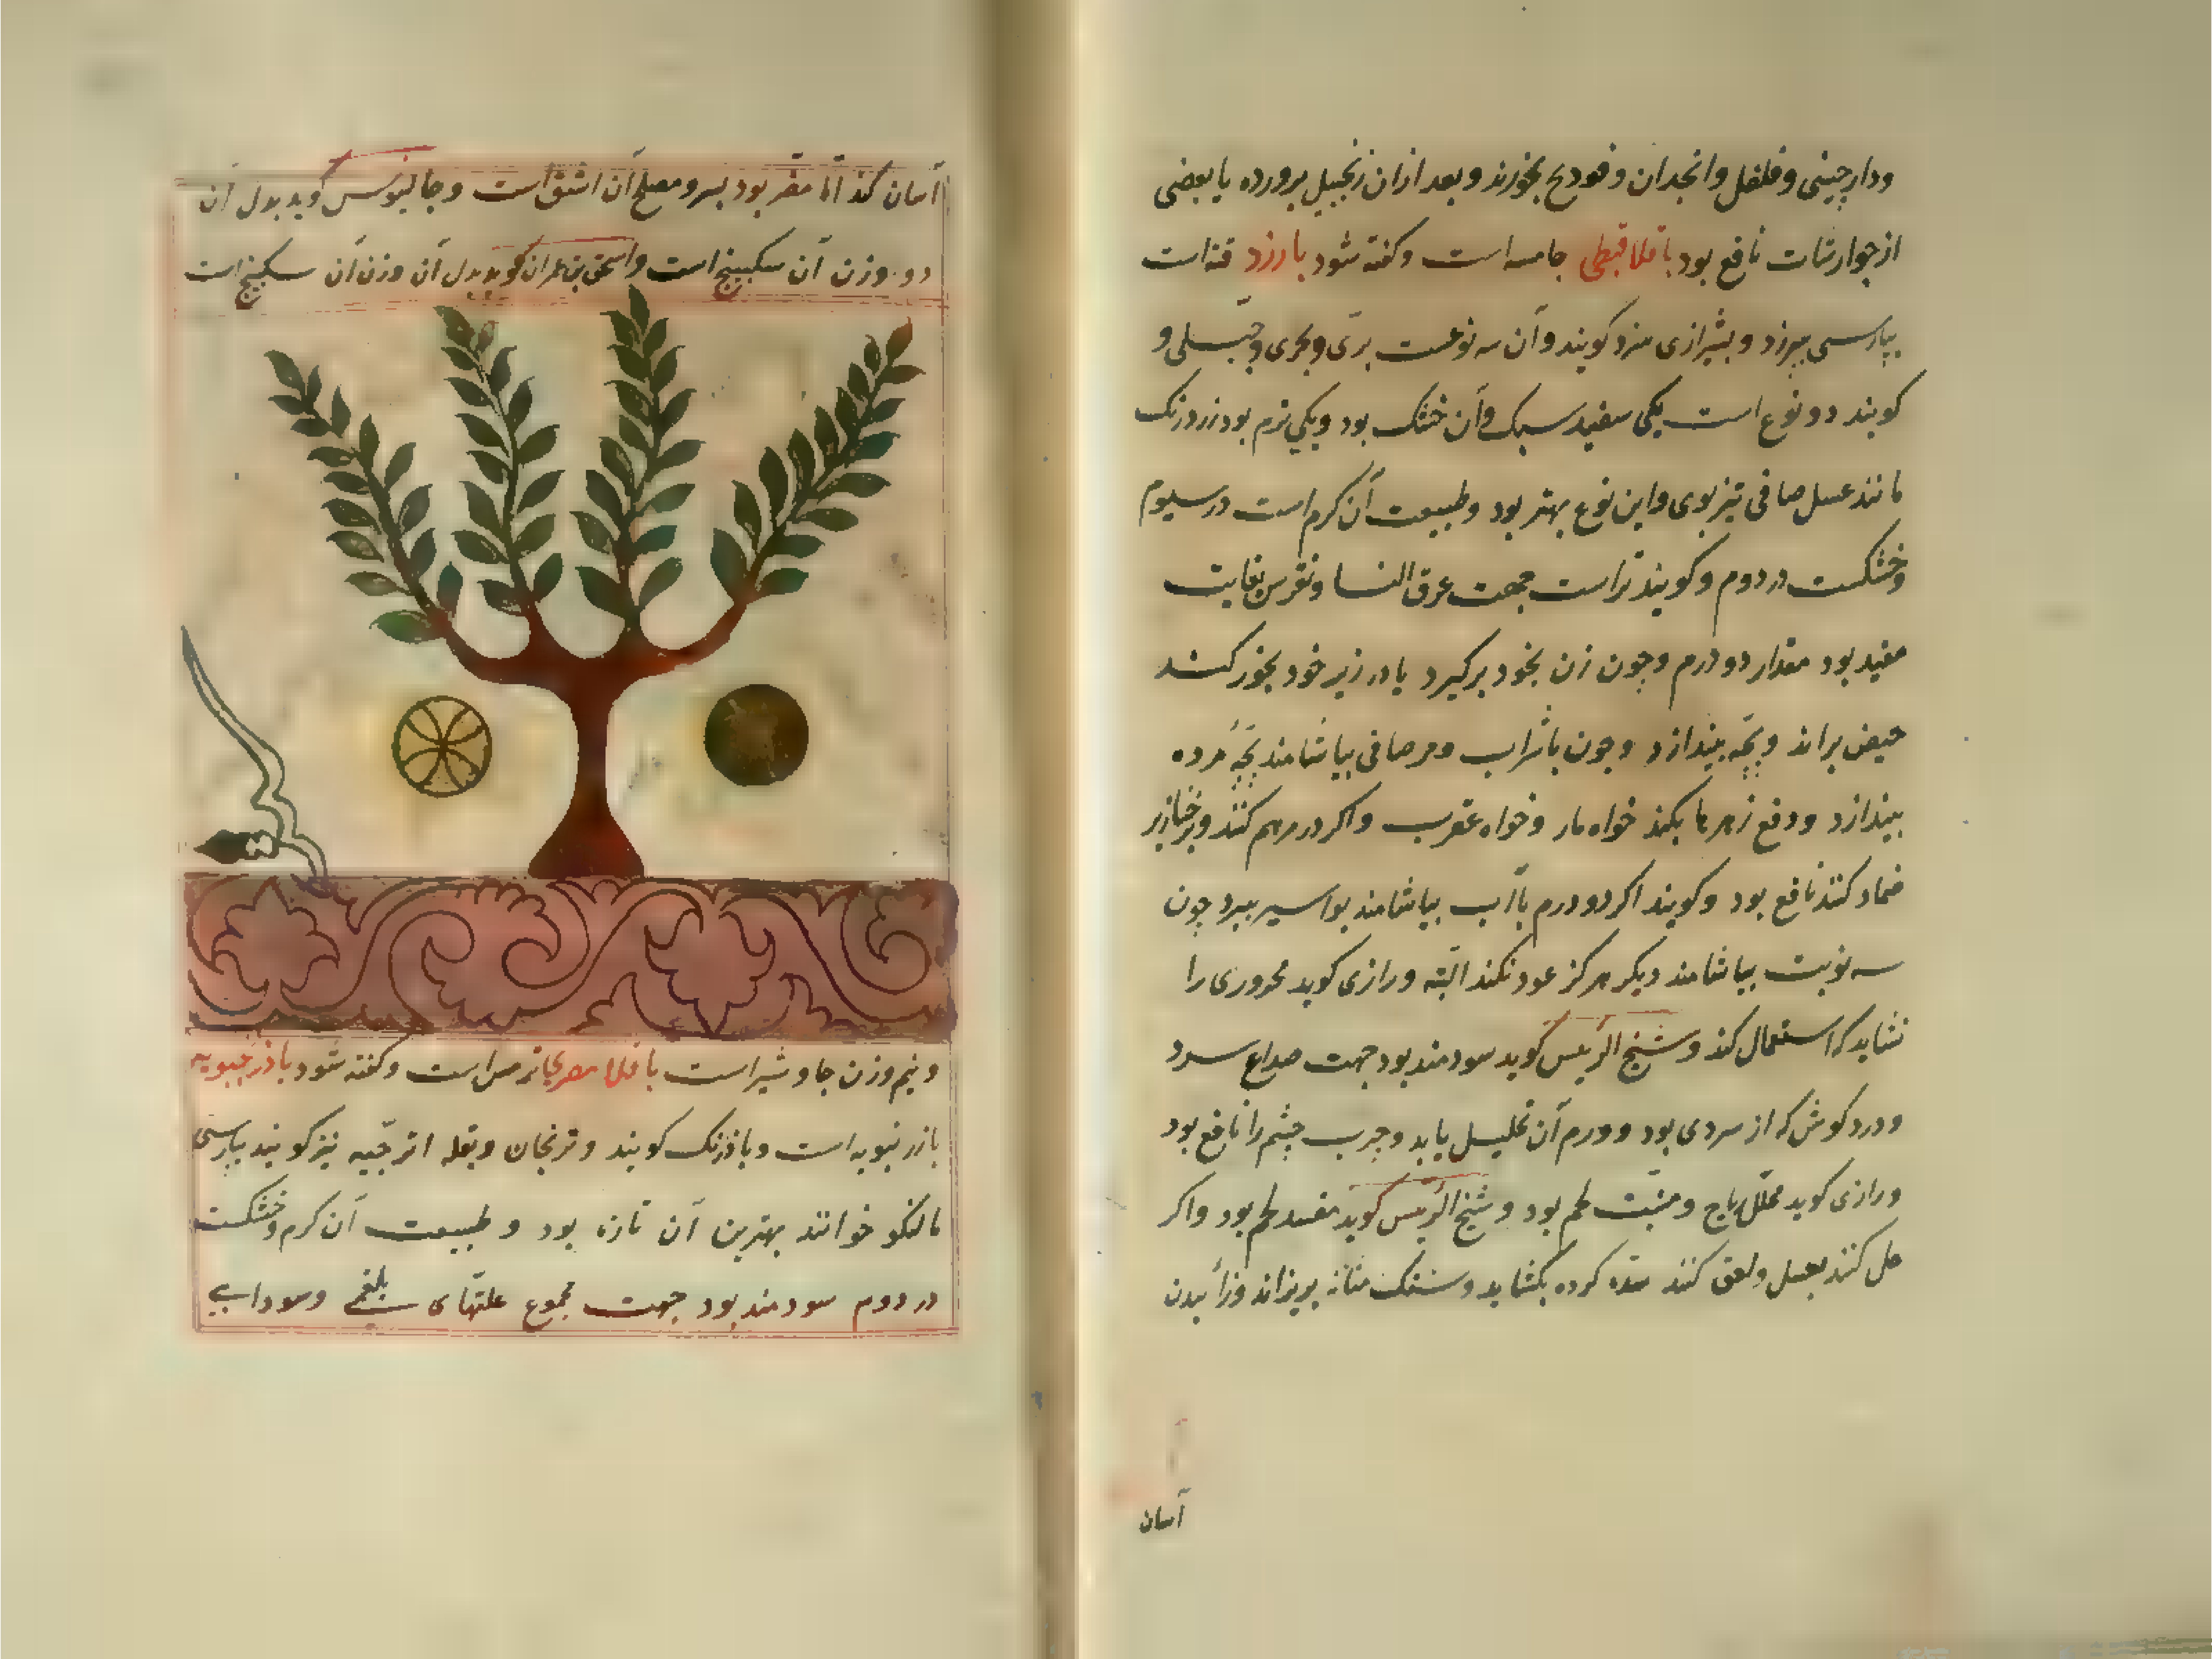 ودارچینی وفلفل وانجدان وفودنج بخورند وبعد ازان زنجبیل پرورده یا بعضی
ازجوارشات نافع بود باقلا قبطی جامسه است وکفته شود بارزد قنه است
بپارسی بیرزد و بشیرازی بیرزد کویند وآن سه نوعست بری وبحری وجبلی و
کویند دو نوع است یکی سفید سبک وآن خشک بود ویکی نرم بود زردرنک
مانند عسل صافی تیزبوی واین نوع بهتر بود وطبیعت آن کرم است در سیوم
وخشکست در دوم وکویند تراست جهت عرق النسا ونقرس بغایت
مفید بود مقدار دو درم وچون زن بخود برکیرد یا در زیر خود بخور کند
حیض براند وبچه بیندازد وچون باشراب ومر صافی بیاشامند بچه مرده
بیندازد ودفع زهرها بکند خواه مار وخواه عقرب واکر در مرهم کنند وبر خنازیر
ضماد کنند نافع بود وکویند اکر دو درم باآب بیاشامند بواسیر ببرد چون
سه نوبت بیاشامند دیکر هرکز عود نکند البته ورازی کوید محروری را
نشاید که استعمال کند وشیخ الرئیس کوید سودمند بود جهت صداع سرد
ودرد کوش که از سردی بود وورم آن تحلیل یابد وجرب چشم را نافع بود
ورازی کوید محلل ریاح ومنبت لحم بود وشیخ الرئیس کوید مفسد لحم بود واکر
حل کنند بعسل ولعق کنند سده کرده بکشاید وسنک مثانه بریزاند وزائیدن
آسان
آسان کند اما مضر بود بسر ومصلح آن اشق است وجالینوس کوید بدل آن
دو وزن آن سکبینج است واسحق بن عمران کوید بدل آن وزن آن سکبینج است
ونیم وزن جاوشیر است باقلا مصری ترمس است وکفته شود باذرنجبویه
بازرنبویه است وباذرنک کویند وترنجان وبقله اترجیه نیز کویند بپارسی
بالنکو خوانند بهترین آن تازه بود وطبیعت آن کرم وخشکست
در دوم سودمند بود جهت مجموع علتهای بلغمی وسودایی